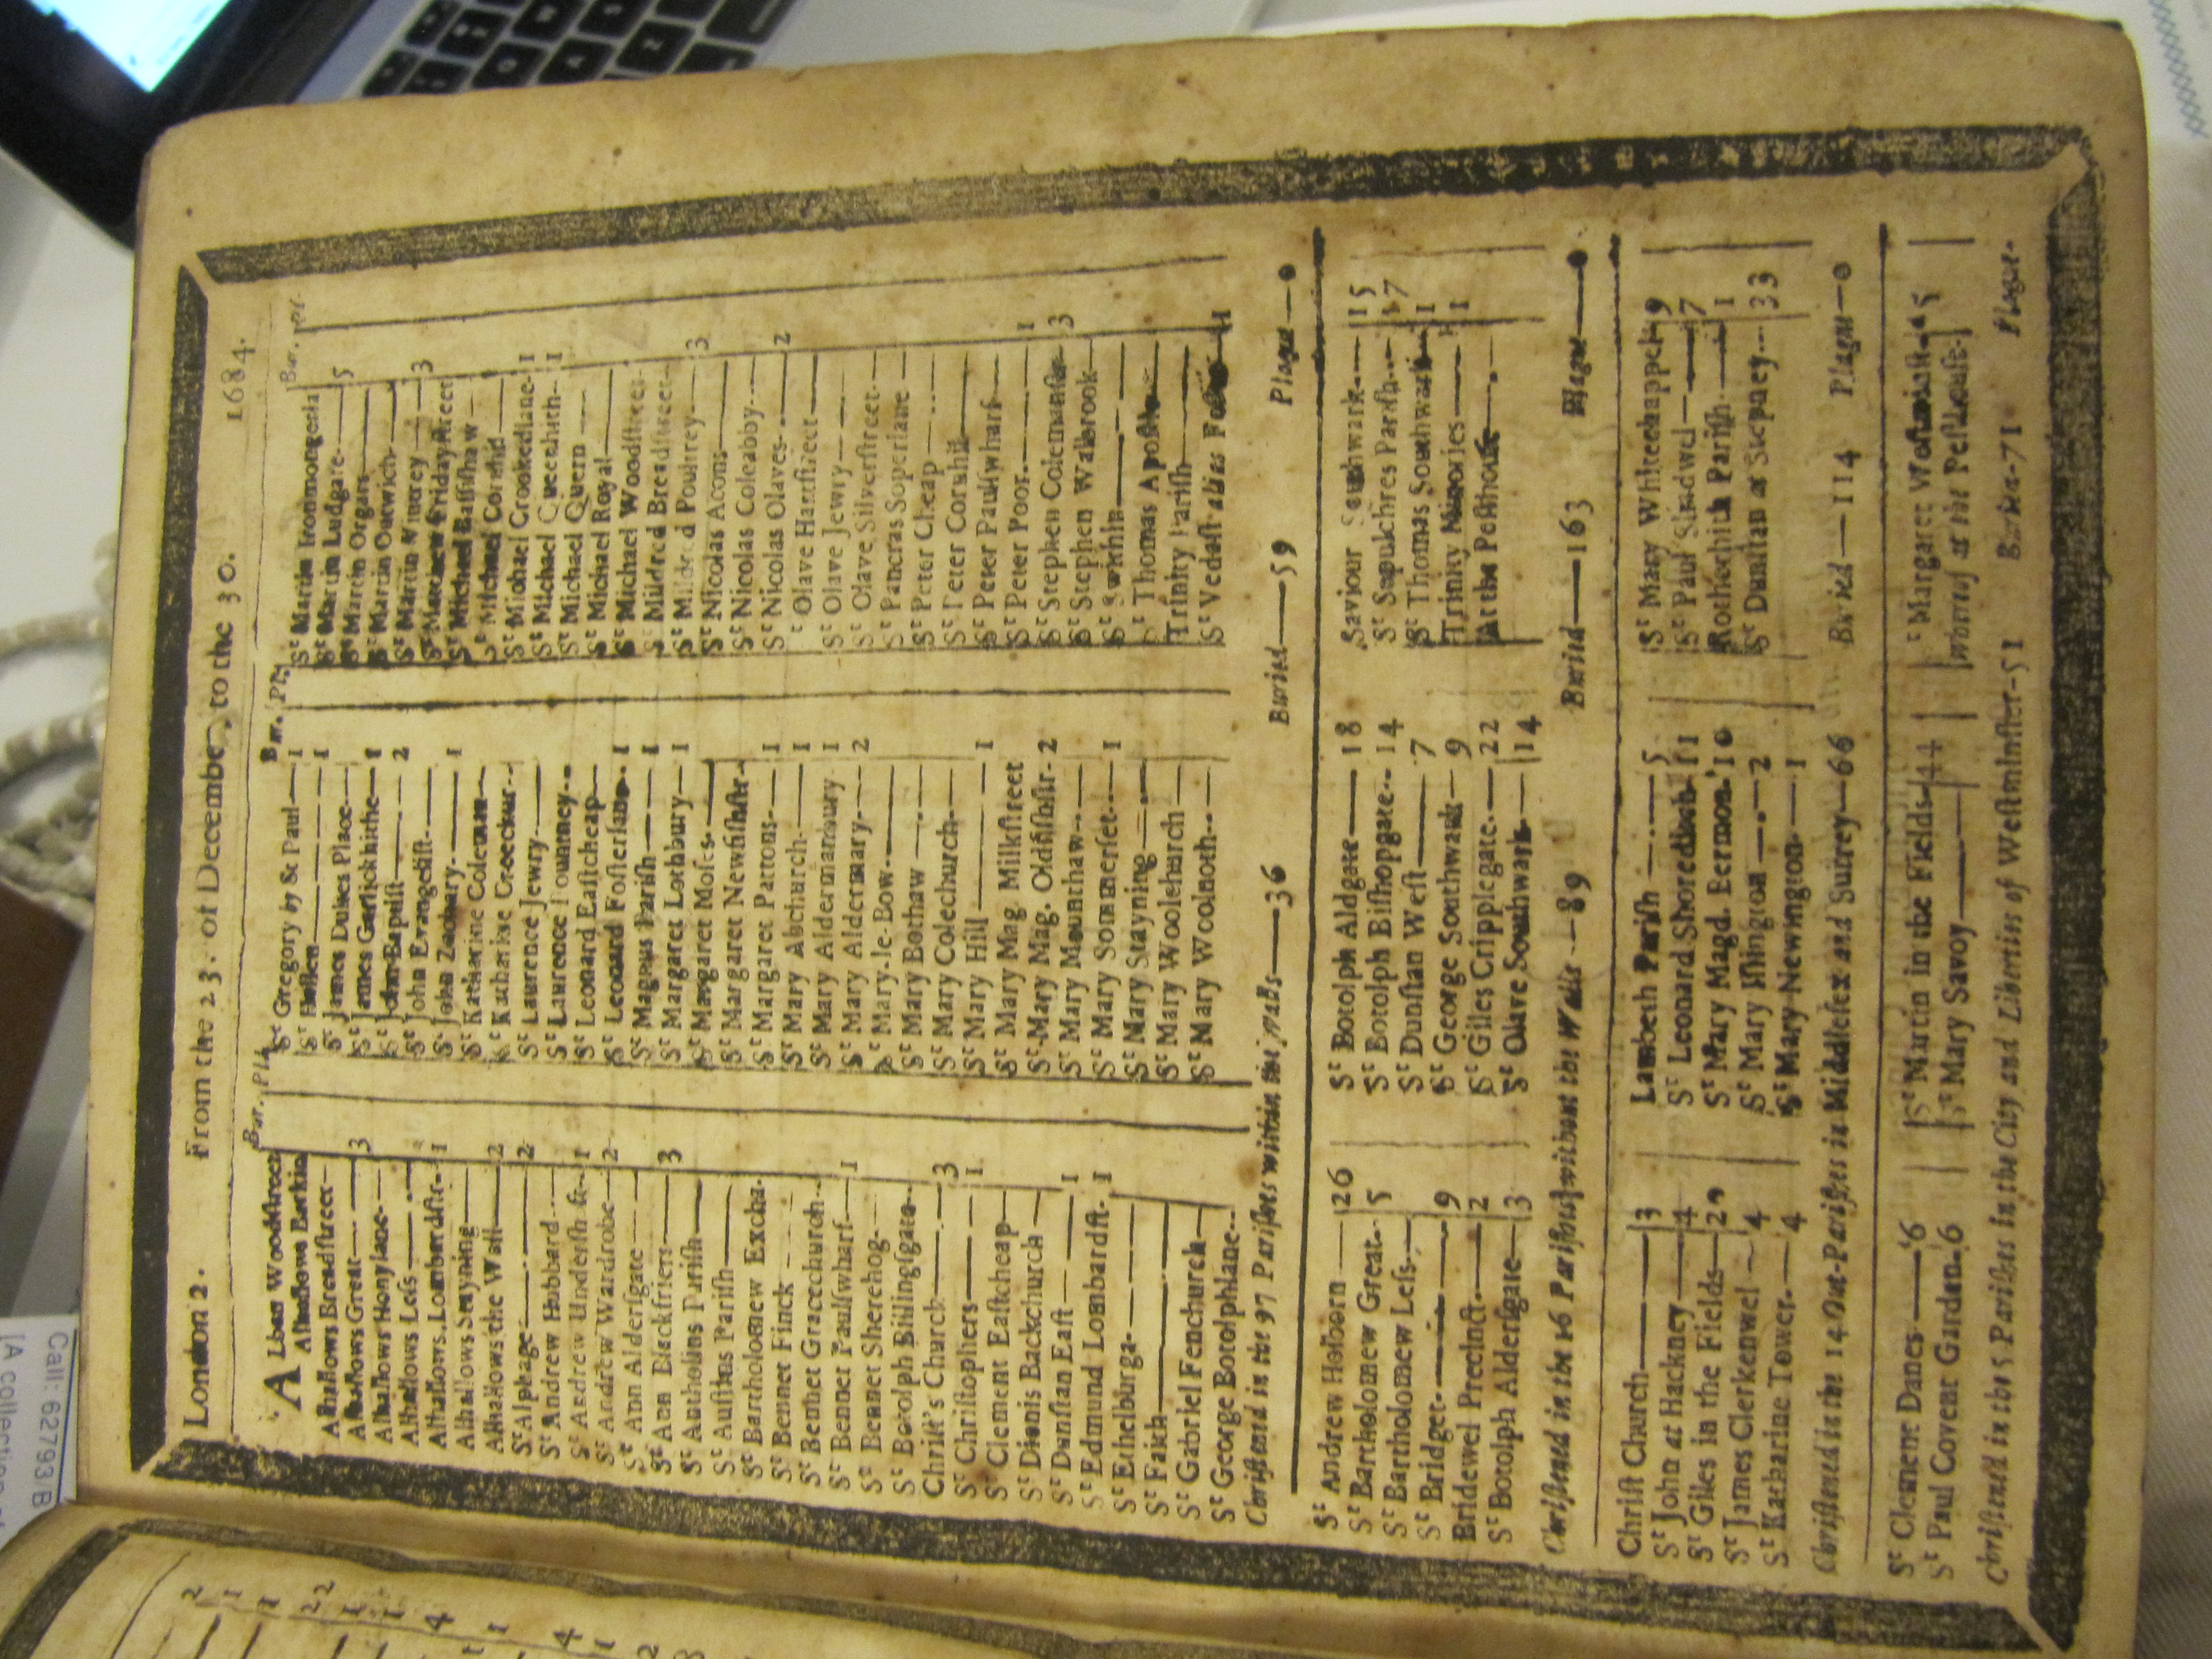 London 2. From the 23. of December, to the 30. 1684.
Bur. Pla. Bur. Pla. Bur. Pla.
ALban Woodstreet
Alhallows Barkin
Alhallows Breadstreet
Alhallows Great 3
Alhallows Honylane
Alhallows Less
Alhallows Lombardstr. 1
Alhallows Stayning
Alhallows the Wall 2
St Alphage 2
St Andrew Hubbard
St Andrew Undersh ft 1
St Andrew Wardrobe 2
St Ann Aldersgate
St Ann Blackfriers 3
St Antholins Parish
St Austins Parish
St Bartholomew Excha.
St Bennet Finck
St Bennet Gracechurch
St Bennet Paulswharf 1
St Bennet Sherehog
St Botolph Billingsgate
Christ's Church 3
St Christophers 1
St Clement Eastcheap
St Dionis Backchurch
St Dunstan East 1
St Edmund Lombardst. 1
St Ethelburga
St Faith
St Gabriel Fenchurch
St George Botolphlane
St Gregory by St Paul 1
St Hellen 1
St James Dukes Place
St James Garlickhithe 1
St John Baptist 2
St John Evangelist
St John Zachary 1
St Katharine Coleman
St Katharine Creechur
St Laurence Jewry
St Laurence Pountney
St Leonard Eastcheap
St Leonard Fosterlane 1
St Magnus Parish 1
St Margaret Lothbury 1
St Margaret Moses
St Margaret Newfishstr
St Margaret Pattons 1
St Mary Abchurch 1
St Mary Aldermanbury 1
St Mary Aldermary 2
St Mary-le-Bow
St Mary Bothaw
St Mary Colechurch
St Mary Hill 1
St Mary Mag. Milkstreet
St Mary Mag. Oldfishstr 2
St Mary Mounthaw
St Mary Sommerset 1
St Mary Stayning
St Mary Woolchurch
St Mary Woolnoth
St Martin Ironmongerla
St Martin Ludgate 5
St Martin Orgars
St Martin Outwich
St Martin Vintrey 3
St Matthew Fridaystreet
St Michael Bassishaw
St Michael Cornhil
St Michael Crookedlane 1
St Michael Queenhith 1
St Michael Quern
St Michael Royal
St Michael Woodstreet
St Mildred Breadstreet
St Mildred Poultrey 3
St Nicolas Acons
St Nicolas Coleabby
St Nicolas Olaves 2
St Olave Hartstreet
St Olave Jewry
St Olave Silverstreet
St Pancras Soperlane
St Peter Cheap
St Peter Cornhil
St Peter Paulswharf
St Peter Poor 1
St Stephen Colemanstr 3
St Stephen Walbrook
St Swithin
St Thomas Apostle
Trinity Parish
St Vedast alias Foster 1
Christened in the 97 Parishes within the Walls—36 Buried—59 Plague—0
St Andrew Holborn 26
St Bartholomew Great 5
St Bartholomew Less
St Bridget 9
Bridewel Precinct 2
St Botolph Aldersgate 3
St Botolph Aldgate 18
St Botolph Bishopgate 14
St Dunstan West 7
St George Southwark 9
St Giles Cripplegate 22
St Olave Southwark 14
Saviour Southwark 15
St Sepulchres Parish 17
St Thomas Southwark 1
Trinity Minories 1
At the Pesthouse
Christened in the 16 Parishes without the Walls—89 Buried—163 Plague—0
Christ Church 3
St John at Hackney 4
St Giles in the Fields 29
St James Clerkenwel 4
St Katharine Tower 4
Lambeth Parish 5
St Leonard Shoreditch 11
St Mary Magd. Bermon. 10
St Mary Islington 2
St Mary Newington 1
St Mary Whitechappel 9
St Paul Shadwel 7
Rotherhith Parish 1
St Dunstan at Stepney 33
Christened in the 14 Out-Parishes in Middlesex and Surrey—66 Buried—114 Plague—0
St Clement Danes 6
St Paul Covent Garden 6
St Martin in the Fields 44
St Mary Savoy
St Margaret Westminst. 15
whereof at the Pesthouse
Christened in the 5 Parishes in the City and Liberties of Westminster—51 Buried—71 Plague—
Call: 62793 B
[A collection